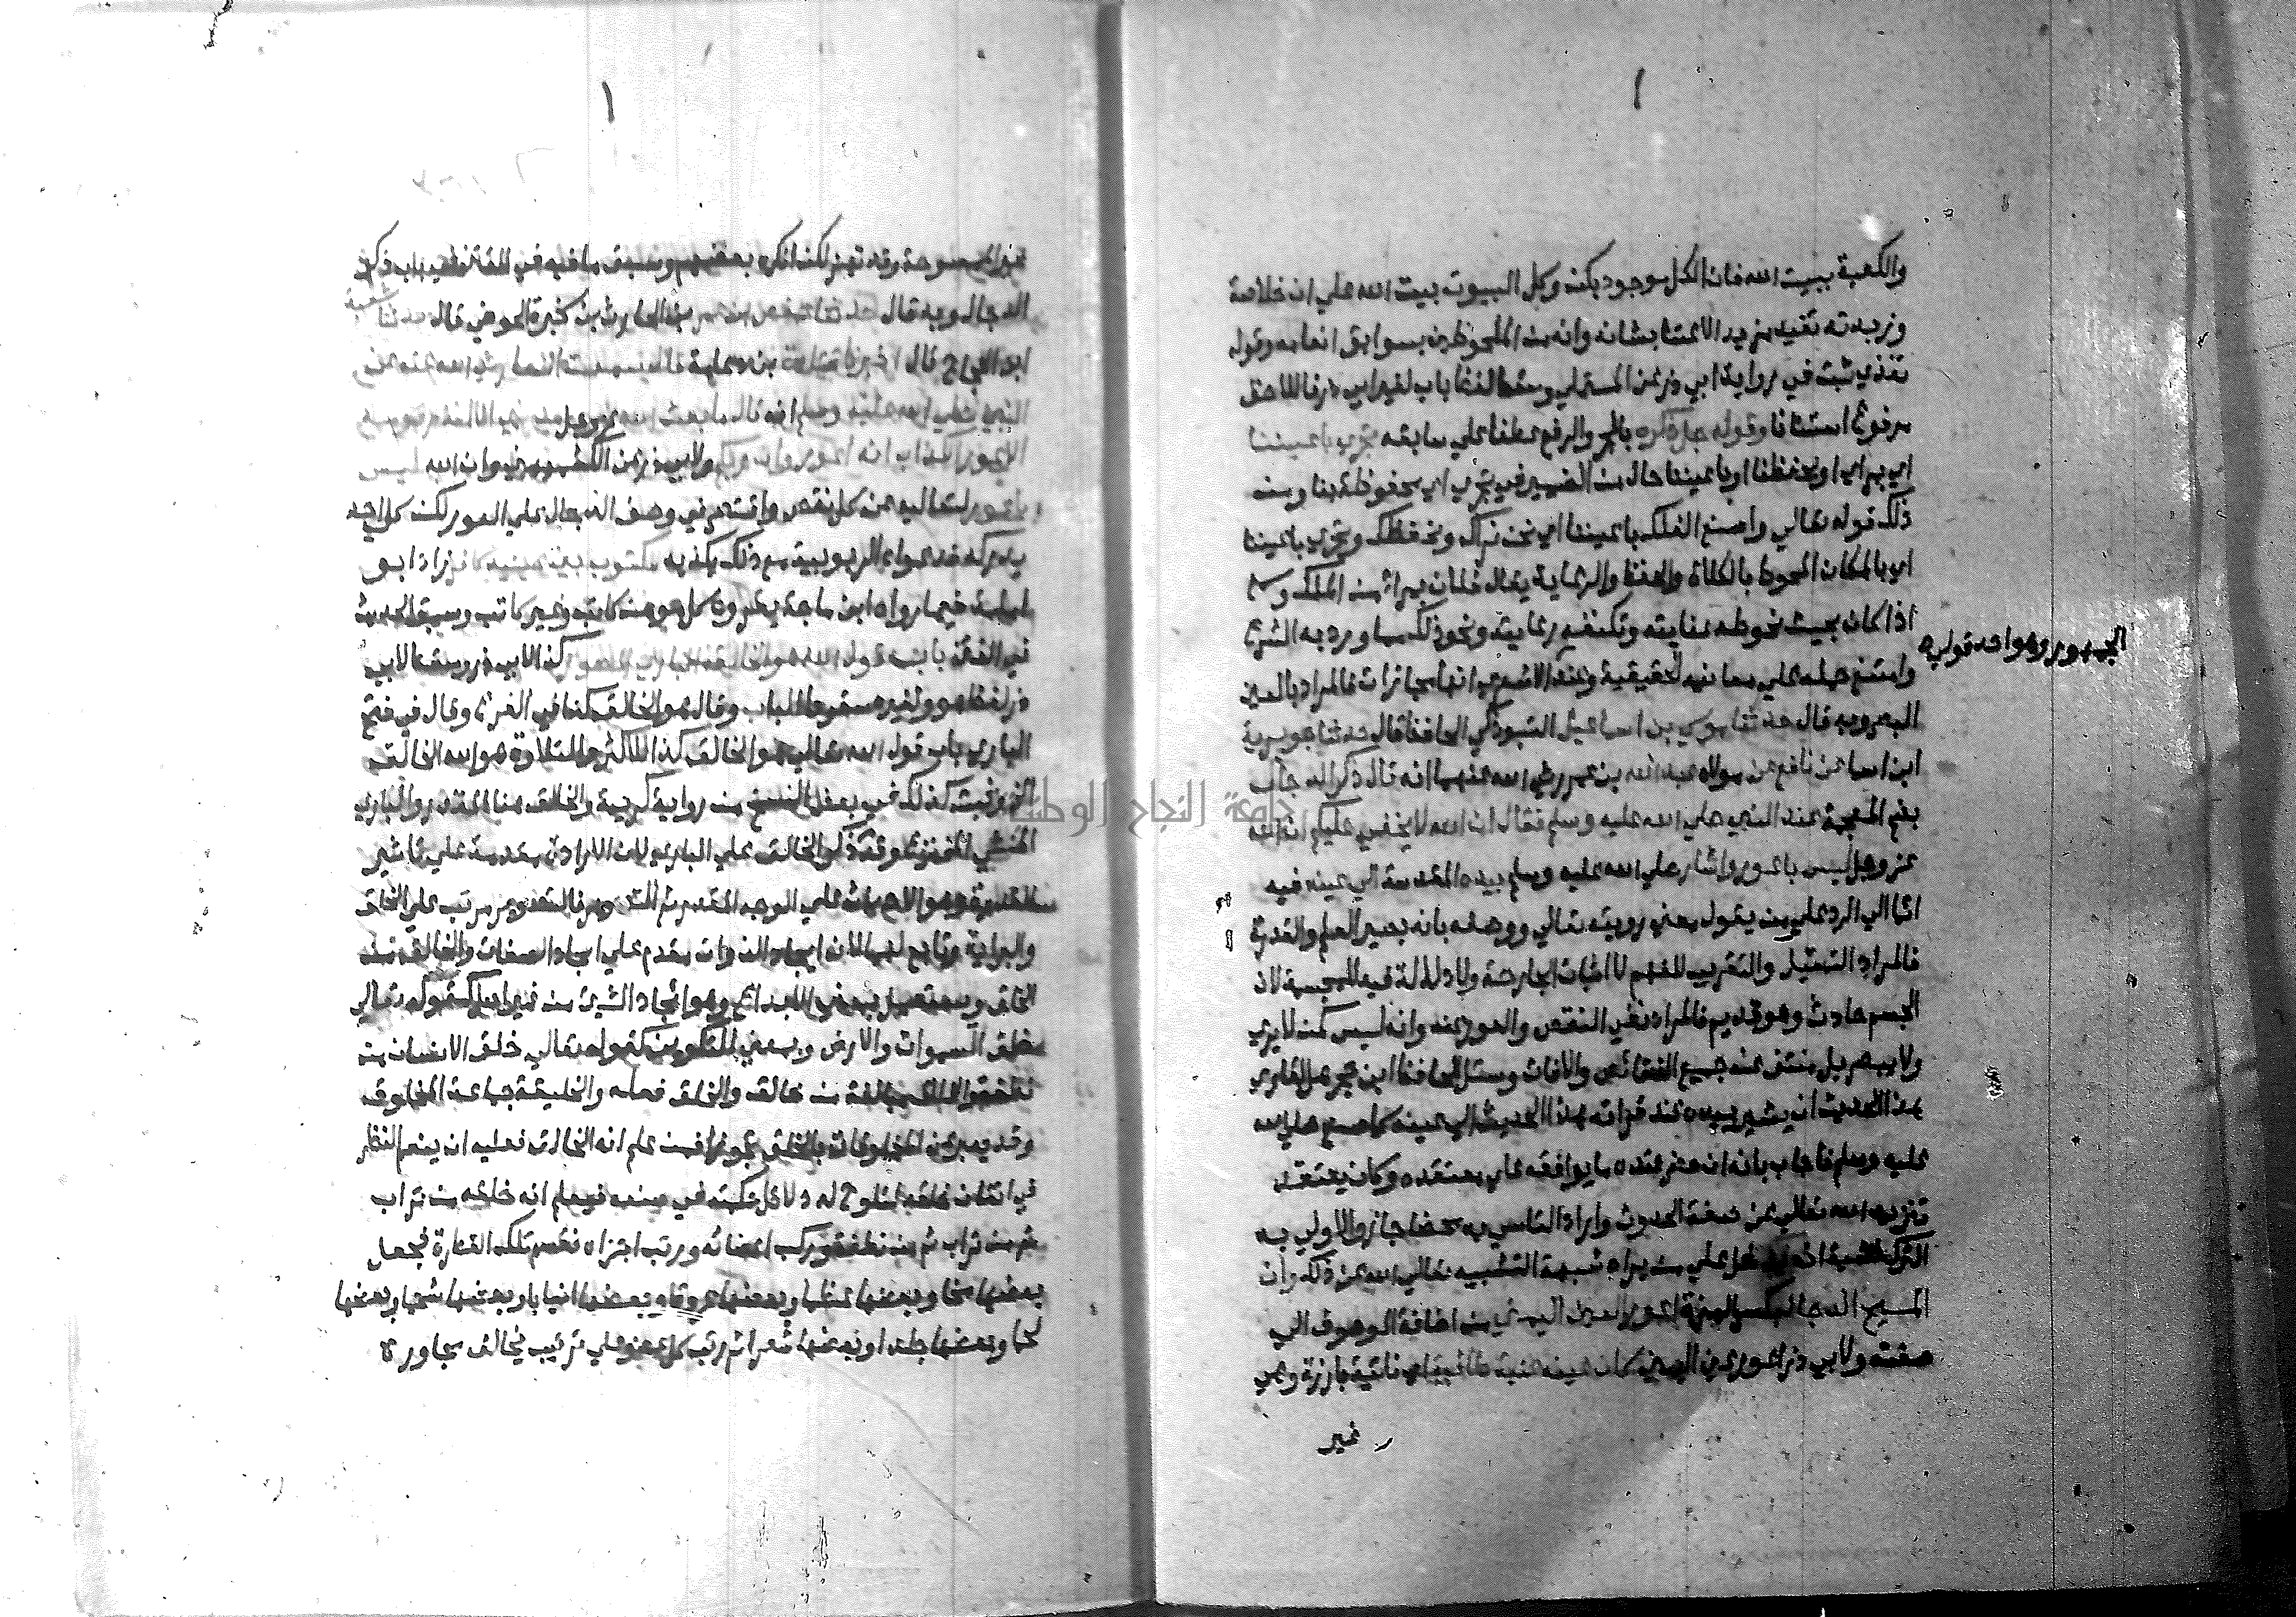 والكعبة ببيت الله فان الكل موجود بكنه وكل البيوت بيت الله علي ان خلاصة
وزبدته تفيد مزيد الاعتنا بشانه وانه من الملحوظين بسوابق انعامه وقوله
تغذي ثبت في رواية ابي ذر عن المستملي وسقط لفظ باب لغير ابي ذر فاللاحق
مرفوع استئنافا وقوله جل ذكره بالجر والرفع عطفا علي سابقه تجري باعيننا
اي بمراي او بحفظنا او باعيننا حال من الضمير في تجري اي محفوظة بنا ومنه
ذلك قوله تعالي واصنع الفلك باعيننا اي نحن نراك ونحفظك وتجري باعيننا
اي بالمكان المحوط بالكلاة والحفظ والرعاية يقال فلان بمراء من الملك ومسمع
اذا كان بحيث تحوطه عنايته وتكتنفه رعايته ونحو ذلك مما ورد به الشرع
وامتنع حمله علي معانيه الحقيقية وعند الاشعري انها مجازات فالمراد بالعين
الجمهور وهو احد قوليه
البصر وبه قال حدثنا موسي بن اسماعيل التبوذكي الحافظ قال حدثنا جويرية
ابن اسما عن نافع عن مولاه عبد الله بن عمر رضي الله عنهما انه قال ذكر الدجال
بضم المعجمة عند النبي صلي الله عليه وسلم فقال ان الله لا يخفي عليكم ان الله
عز وجل ليس باعور واشار صلي الله عليه وسلم بيده المقدسة الي عينه فيه
ايما الي الرد علي من يقول معني رويته تعالي ووصفه بانه بصير العلم والقدرة
فالمراد التمثيل والتقريب للفهم لا اثبات الجارحة ولا دلالة فيه للمجسمة لان
الجسم حادث وهو قديم فالمراد نفي النقص والعور عنه وانه ليس كمن لا يري
ولا يبصر بل منتف عنه جميع النقائص والافات وسئل الحافظ ابن حجر هل لقاري
هذا الحديث ان يشير بيده عند قراته هذا الحديث الي عينه كما صنع صلي الله
عليه وسلم فاجاب بانه ان حضر عنده ما يوافقه علي معتقده وكان يعتقد
تنزيه الله تعالي عن صفة الحدوث واراد التاسي به محضا جاز والاولي به
الترك خشية ان يدخل علي من يراه شبهة التشبيه تعالي الله عن ذلك وان
المسيح الدجال بكسر الهمزة اعور العين اليمني من اضافة الموصوف الي
صفته ولابي ذر اعور عين اليمني كان عينه عنبة طافية اي ناتية بارزة وهي
غير
غير الممسوحة وقد تهمز لكن انكره بعضهم وسبق ما فيه في الفتن في باب ذكر
الدجال وبه قال حدثنا حفص بن عمر بن الحارث بن سخبرة الحوضي قال حدثنا شعبة
ابن الحجاج قال اخبرنا قتادة بن دعامة قال سمعت انسا رضي الله عنه عن
النبي صلي الله عليه وسلم انه قال ما بعث الله عز وجل من نبي الا انذر قومه
الاعور الكذاب انه اعور وان ربكم ولابي ذر عن الكشميهني وان الله ليس
باعور لتعاليه عن كل نقص واقتصر في وصف الدجال علي العور لكن كل احد
يدركه فدعواه الربوبية مع ذلك يكذبه مكتوب بين عينيه كافر زاد ابو
امامة فيما رواه ابن ماجة يقروه كل مومن كاتب وغير كاتب وسبق الحديث
في الفتن باب قول الله هو الخالق البارئ المصور كذا لابي ذر وسقط لابي
ذر لفظ هو ولغيره سقوط الباب وقال هو الخالق كذا في الفرع وقال في فتح
الباري باب قول الله تعالي هو الخالق كذا للاكثر والتلاوة هو الله الخالق
الخ وثبت كذلك في بعض النسخ من رواية كريمة والخالق هنا المقدر والباري
المنشئ المخترع وقدم ذكر الخالق علي الباري لان الارادة مقدمة علي تاثير
القدرة وهو الاحداث علي الوجه المقدر ثم التصوير فالتصوير مرتب علي الخلق
والبراية وتابع لهما لان ايجاد الذوات مقدم علي ايجاد الصفات والخالق من
الخلق ويستعمل بمعني الابداع وهو ايجاد الشيئ من غير اصل كقوله تعالي
خلق السموات والارض وبمعني التكوين كقوله تعالي خلق الانسان من
نطفة والخلاق مبالغة من خالق والخلق فعله والخليقة جماعة المخلوق
وقد يعبر عن المخلوقات بالخلق تجوزا فمن علم انه الخالق فعليه ان ينعم النظر
في اتقان خلقه لتلوح له دلائل حكمته في صنعه فيعلم انه خلقه من تراب
ثم من تراب ثم من نطفة وركب اعضائه ورتب اجزاه فقسم تلك القطرة فجعل
بعضها مخا وبعضها عظما وبعضها عروقا وبعضها انيابا وبعضها شحما وبعضها
لحما وبعضها جلدا وبعضها شعرا ثم رتب كل عضو علي ترتيب يخالف مجاوره
جامعة النجاح الوطنية